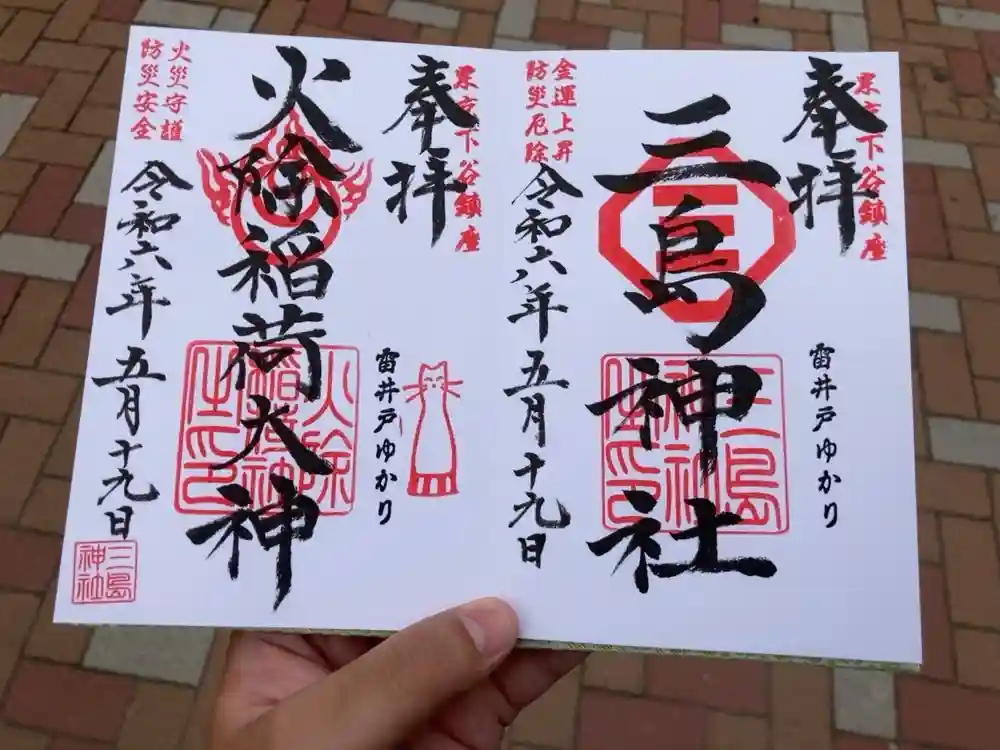 東京下谷鎮座
奉拝
三島神社
三島神社之印
雷井戸ゆかり
金運上昇
防災厄除
令和六年五月十九日
東京下谷鎮座
奉拝
火除稲荷大神
火除稲荷神社之印
雷井戸ゆかり
火災守護
防災安全
令和六年五月十九日
三島神社